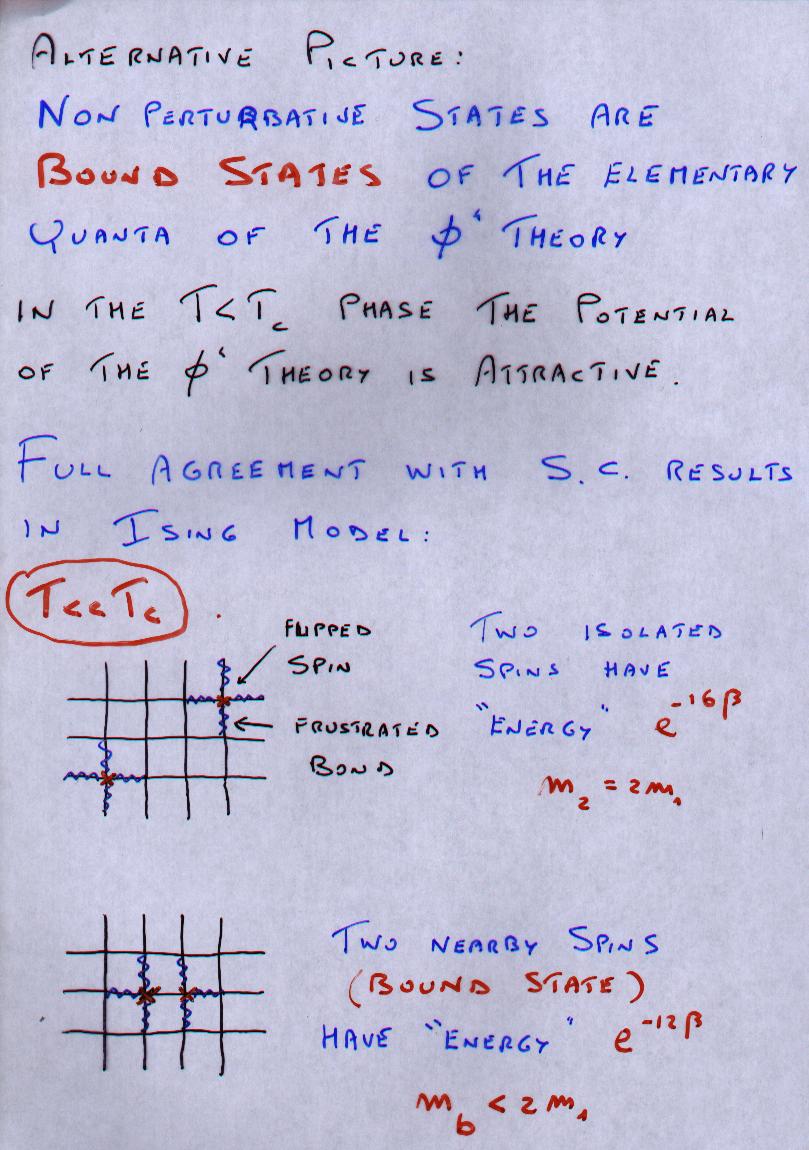 ALTERNATIVE PICTURE:
NON PERTURBATIVE STATES ARE
BOUND STATES OF THE ELEMENTARY
QUANTA OF THE ϕ⁴ THEORY
IN THE T<T_c PHASE THE POTENTIAL
OF THE ϕ⁴ THEORY IS ATTRACTIVE.
FULL AGREEMENT WITH S.C. RESULTS
IN ISING MODEL:
T<<T_c
FLIPPED
SPIN
FRUSTRATED
BOND
TWO ISOLATED
SPINS HAVE
"ENERGY" e^{-16β}
m_2 = 2m_1
TWO NEARBY SPINS
(BOUND STATE)
HAVE "ENERGY" e^{-12β}
m_b < 2m_1